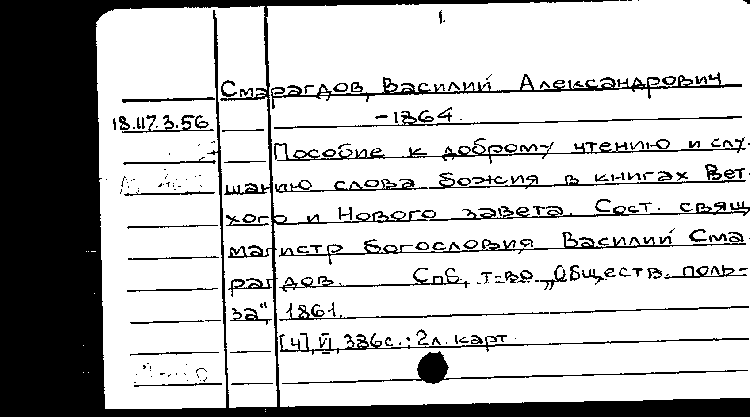 1.
Смарагдов, Василий Александрович
18.117.3.56
-1864.
Пособие к доброму чтению и слу-
шанию слова божия в книгах Вет-
хого и Нового завета. Сост. свящ.
магистр богословия Василий Сма-
рагдов. Спб, т-во „Обществ. поль-
за", 1861.
[4], VI, 386с.; 2л. карт.